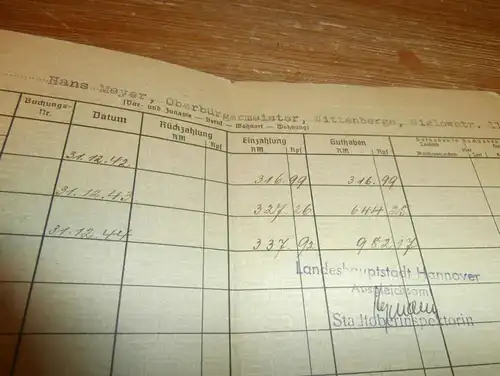 Hans Meyer, Oberbürgermeister, Wittenberge,
(Vor- und Zuname — Beruf — Wohnort — Wohnung)
Buchungs-Nr. Datum Rückzahlung RM Rpf Einzahlung RM Rpf Guthaben RM Rpf
31.12.42. 316.99 316.99
31.12.43 327.26 644.25
31.12.44 337.92 982.17
Landeshauptstadt Hannover
Ausgleichsamt
Stadtoberinspektorin